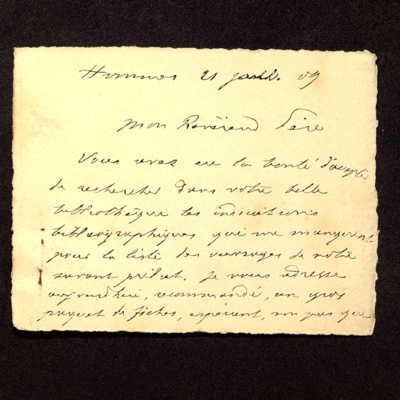 Hommes 21 juill. 09
Mon Révérend Père
Vous avez eu la bonté d'accepter
de rechercher dans votre belle
bibliothèque les indications
bibliographiques qui me manquent
pour la liste des ouvrages de notre
savant prélat. Je vous adresse
aujourd'hui, recommandé, un gros
paquet de fiches, espérant, non pas que